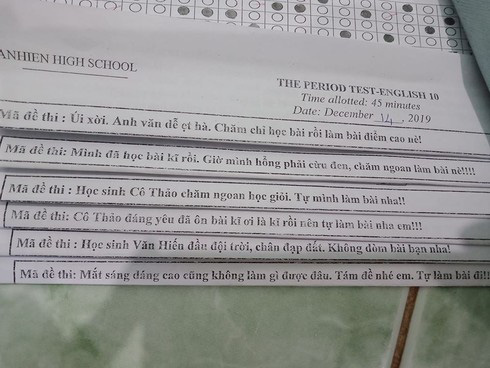 ANHIEN HIGH SCHOOL
THE PERIOD TEST-ENGLISH 10
Time allotted: 45 minutes
Date: December 14, 2019
Mã đề thi : Úi xời. Anh văn dễ ợt hà. Chăm chỉ học bài rồi làm bài điểm cao nè!
Mã đề thi: Mình đã học bài kĩ rồi. Giờ mình hổng phải cừu đen, chăm ngoan làm bài nè!!!!
Mã đề thi : Học sinh Cô Thảo chăm ngoan học giỏi. Tự mình làm bài nha!!
Mã đề thi: Cô Thảo đáng yêu đã ôn bài kĩ ơi là kĩ rồi nên tự làm bài nha em!!!
Mã đề thi : Học sinh Văn Hiến đầu đội trời, chân đạp đất. Không dòm bài bạn nha!
Mã đề thi: Mắt sáng dáng cao cũng không làm gì được đâu. Tám đề nhé em. Tự làm bài đi!!